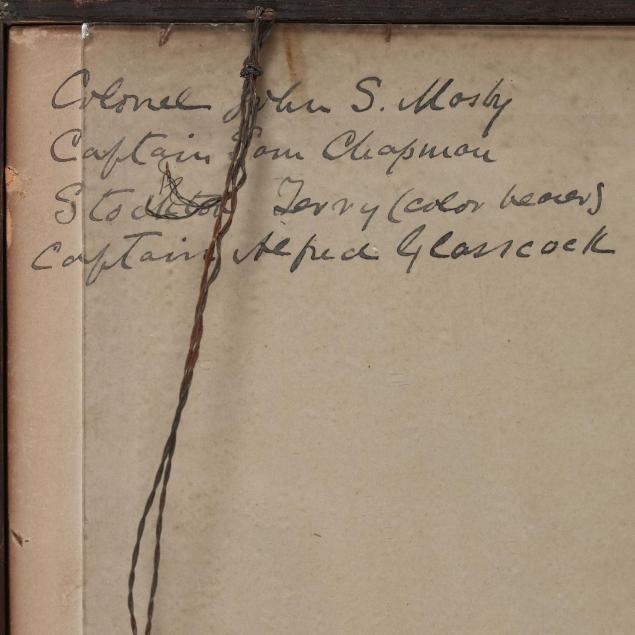 Colonel John S. Mosby
Captain Tom Chapman
Stockton Terry (color bearer)
Captain Alfred Glasscock